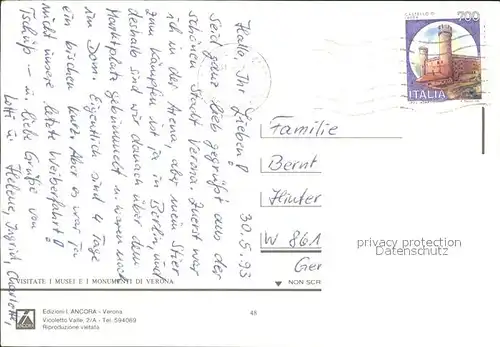 Hallo, Ihr Lieben! 30.5.93
Seid ganz lieb gegrüßt aus der
schönen Stadt Verona. Zuerst war
ich in der Arena, aber mein Stier
zum kämpfen ist ja in Berlin, und
deshalb sind wir danach über den
Marktplatz gebummelt u. waren noch
im Dom. Eigentlich sind 4 Tage
ein bischen kurz. Aber es war ja
nicht unsere letzte Weiberfahrt!
Tschüß – u. liebe Grüße von
Lotti u. Helene, Ingrid, Charlotte,
700
ITALIA
Familie
Bernt
Hinter
W 861
Ger
privacy protection
Datenschutz
VISITATE I MUSEI E I MONUMENTI DI VERONA
NON SCR
ANCORA
Edizioni L'ANCORA - Verona
Vicoletto Valle, 2/A - Tel. 594069
Riproduzione vietata
48